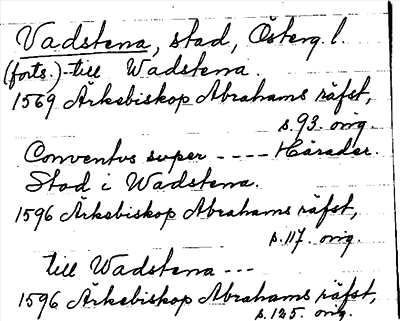 Vadstena, stad, Österg. l.
(forts.) - till Wadstena.
1569 Ärkebiskop Abrahams räfst,
s. 93. orig.
Conventus super ---- Härader.
Stad i Wadstena.
1596 Ärkebiskop Abrahams räfst,
s. 117. orig.
till Wadstena ---
1596 Ärkebiskop Abrahams räfst,
s. 125. orig.